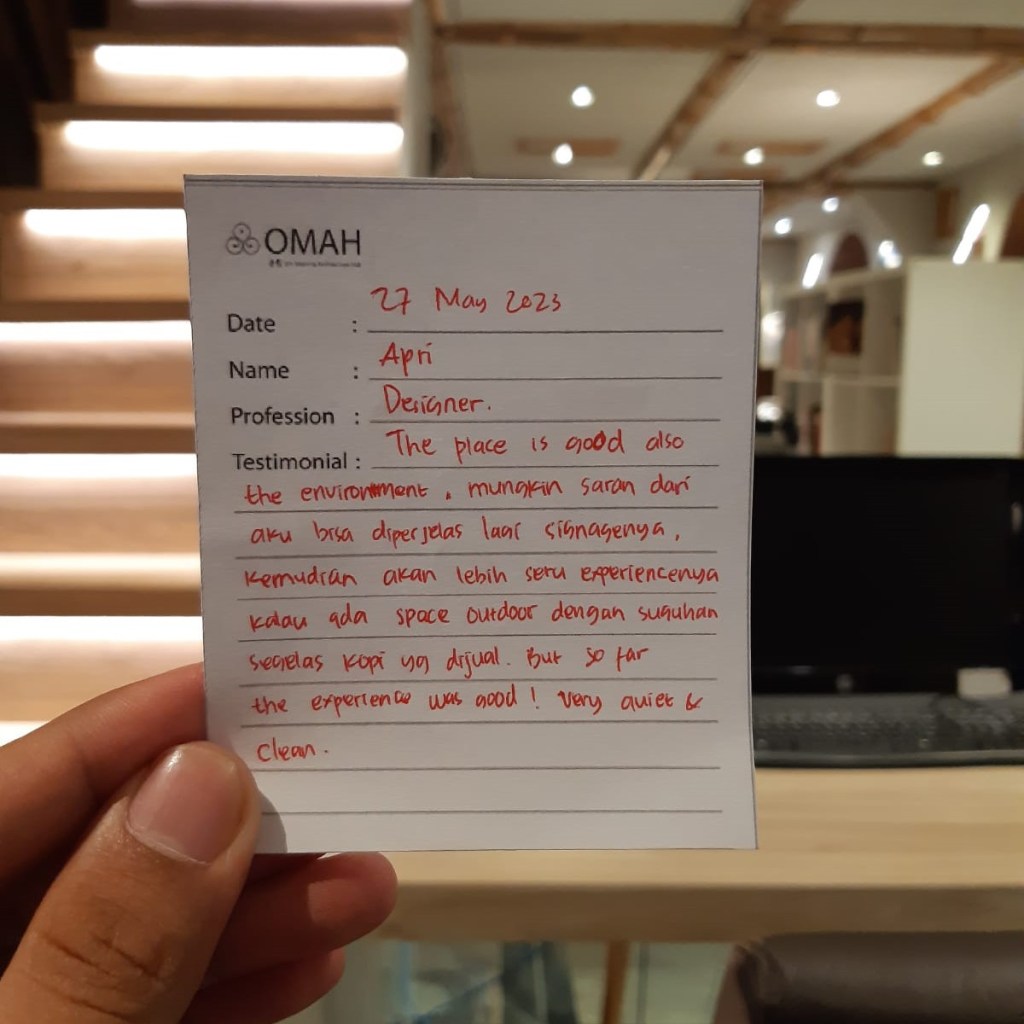 OMAH
Date : 27 May 2023
Name : Apri
Profession : Designer.
Testimonial : The place is good also
the environment, mungkin saran dari
aku bisa diperjelas lagi signagenya,
kemudian akan lebih seru experiencenya
kalau ada space outdoor dengan suguhan
segelas kopi yg dijual. But so far
the experience was good! Very quiet &
clean.